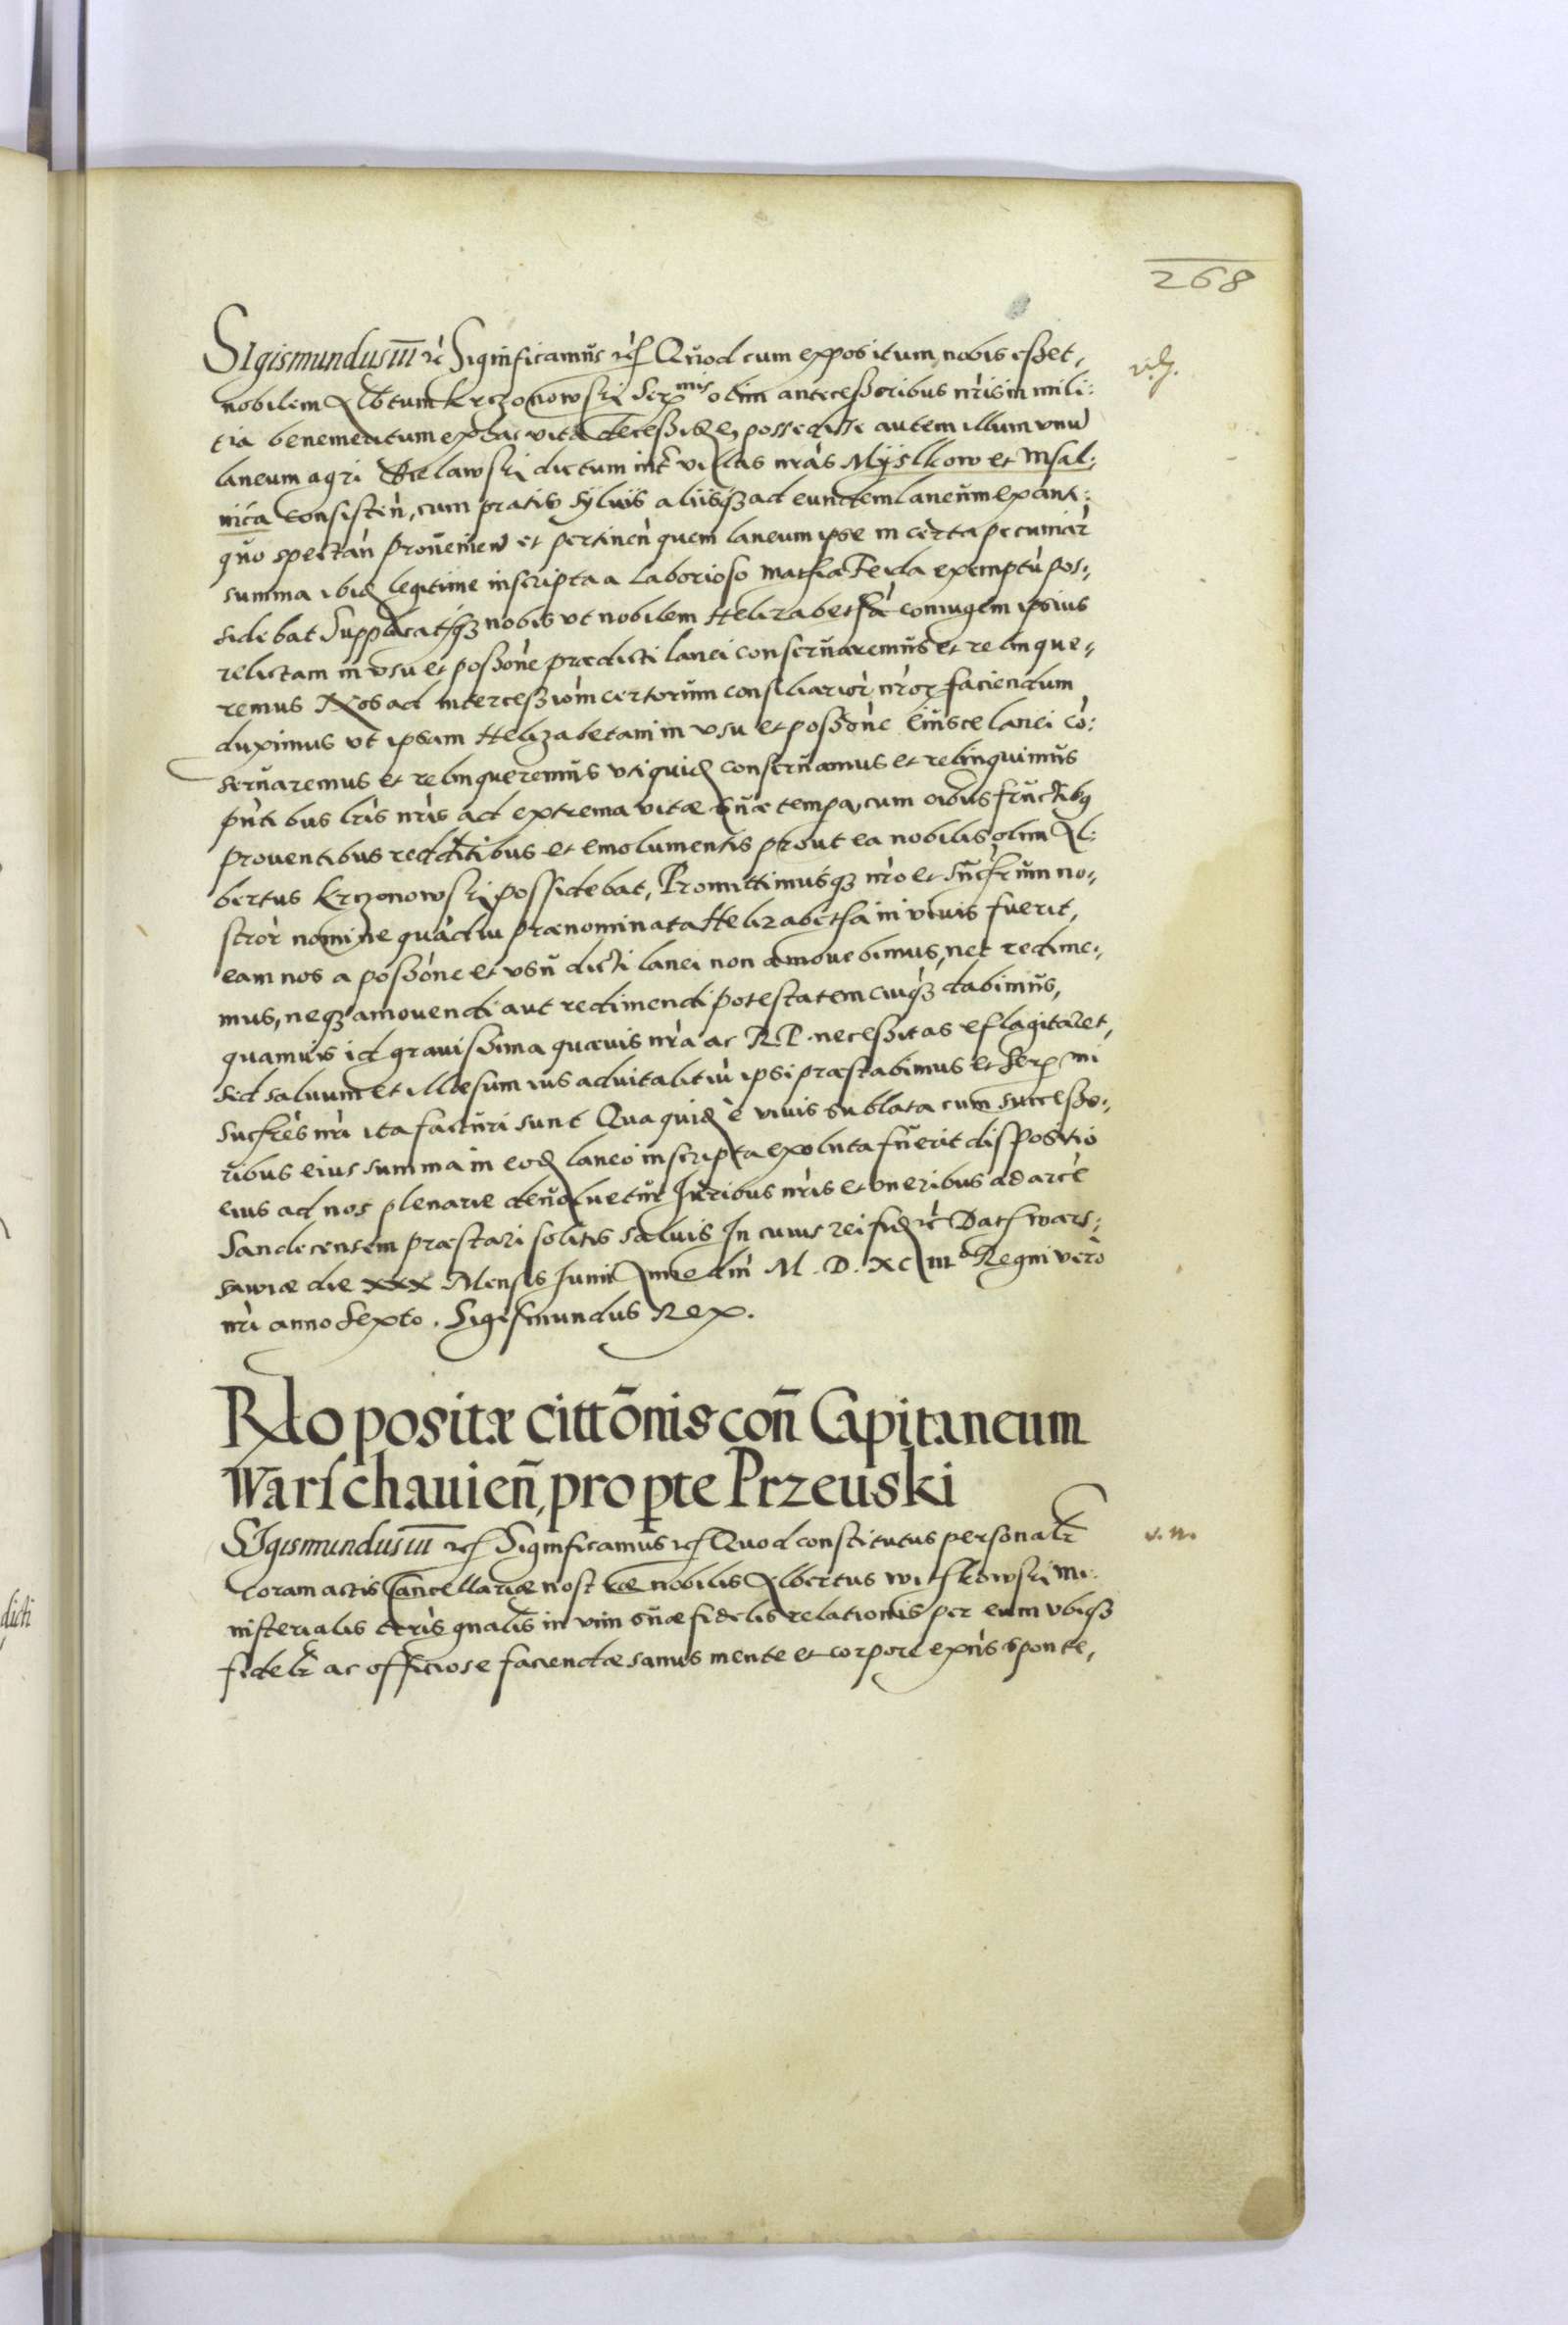 268
SIgismundus III rc̃ Significamus rc̃ Quod cum expositum nobis esset,
nobilem Albtum Krczonowski Serx mis olim antecessoribus nr̃is in mili:
tia benemeritum ex hac vita decessisse, possedisse autem illum vnũ
laneum agri lawski dictum intr̃ villas nr̃as Mÿslkow et Msal:
nica consisten̄, cum pratis sÿluis aliisq3 ad eundem laneum ex anti:
quo spectan̄ prouenien̄ et pertinen̄ quem laneum ipse in certa pecuniar̄
summa ibid legitime inscripta a laborioso Mathia Feida exemptũ pos:
sidebat Supplicatq3 nobis vt nobilem Helizabetha coniugem ipsius
relictam in vsu et possõne prædicti lanei conseruaremus et relinque:
remus Nos ad intercessiõm certorum consiliarior̄ nr̃or faciendum
duximus vt ipsam Helizabetam in vsu et possõne eiusce lanei cõ:
seruaremus et relinqueremus vti quid conseruamus et relinquimus
pñtibus lr̃is nr̃is ad extrema vitæ suæ tempa, cum oĩbus fructib9
prouentibus redditibus et emolumentis prout ea nobilis olim Al:
bertus Krczonowski possidebat, Promittimusq3 nr̃o et Suc̃rum no:
stror̄ nomine quãdiu prænominata Helizabetha in viuis fuerit,
eam nos a possõne et vsu dicti lanei non amouebimus, nec redime:
mus, neq3 amouendi aut redimendi potestatem cuiq3 dabimus,
quamuis id grauissima quæuis nr̃a ac R. P. necessitas eflagitaret,
sed saluum et illæsum ius aduitalitiũ ipsi præstabimus et Serx mi
Suc̃res nr̃i ita facturi sunt Qua quid è viuis sublata cum successo:
ribus eius summa in eod laneo inscripta exoluta fuerit dispositio
eius ad nos plenarie deuoluetur Iuribus nr̃is et oneribus ad arcẽ
Sandecensem præstari solitis saluis In cuius rei fid rc̃ Dat Wars:
sawiæ die xxx Mensis Iunii Anno dñi M. D. XC III Regni vero
nr̃i anno Sexto. Sigismundus Rex.
Rℓo positæ cittõnis con̄ Capitaneum
Warschauien̄, pro pte Przeuski
SIgismundus III rc̃ Significamus rc̃ Quod constitutus personalr̃
coram actis Cancellariæ nostræ nobilis Albertus Witkowski mi:
nisterialis terr̃is gnalis in vim suæ fidelis relationis per eum vbiq3
fidelr̃ ac officiose faciendæ sanus mente et corpore exñs sponte,
v. m.
dicti